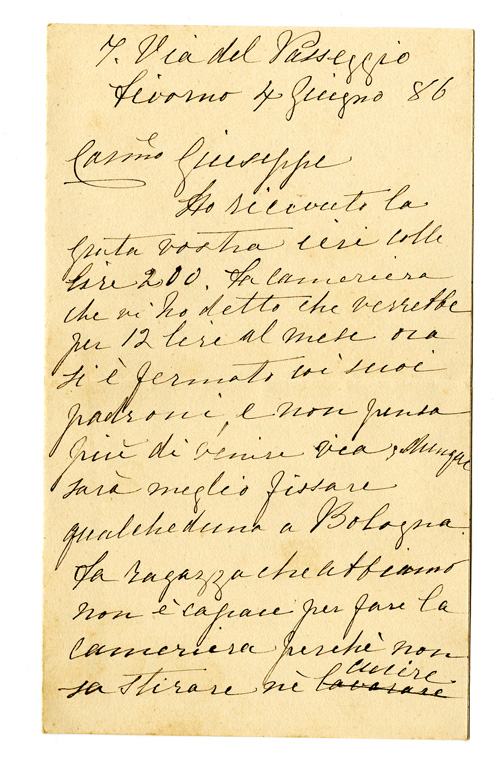 7. Via del Passeggio
Livorno 4 Giugno 86
Carmo Giuseppe
Ho ricevuto la
grata vostra ieri colle
lire 200. La cameriera
che vi ho detto che verrebbe
per 12 lire al mese ora
si è fermato coi suoi
padroni, e non pensa
più di venire via, dunque
sarà meglio fissare
qualcheduna a Bologna.
La ragazza che abbiamo
non è capace per fare la
cameriera perchè non
cucire
sa stirare nè lavorare